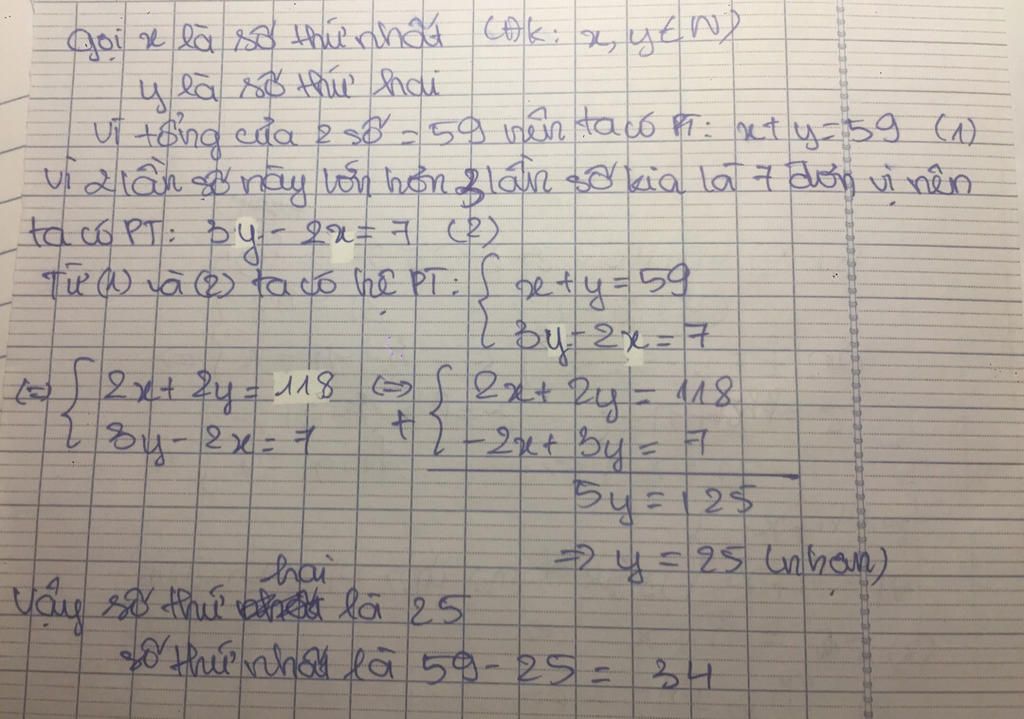 Gọi x là số thứ nhất (ĐK: x, y ∈ N)
y là số thứ hai
Vì tổng của 2 số = 59 nên ta có PT: x + y = 59 (1)
Vì 2 lần số này lớn hơn 3 lần số kia là 7 đơn vị nên
ta có PT: 3y - 2x = 7 (2)
Từ (1) và (2) ta có hệ PT: { x + y = 59
3y - 2x = 7
<=> { 2x + 2y = 118 <=> { 2x + 2y = 118
3y - 2x = 7 + -2x + 3y = 7
5y = 125
=> y = 25 (nhận)
Vậy số thứ hai là 25
số thứ nhất là 59 - 25 = 34